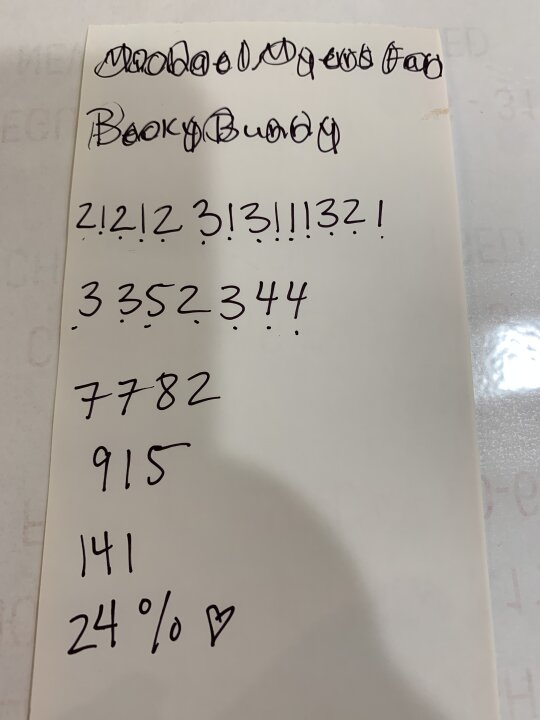 Michael Myers Fan
Becky Bundy
21212 31311321
3 3 5 2 3 4 4
7782
915
141
24% ♡